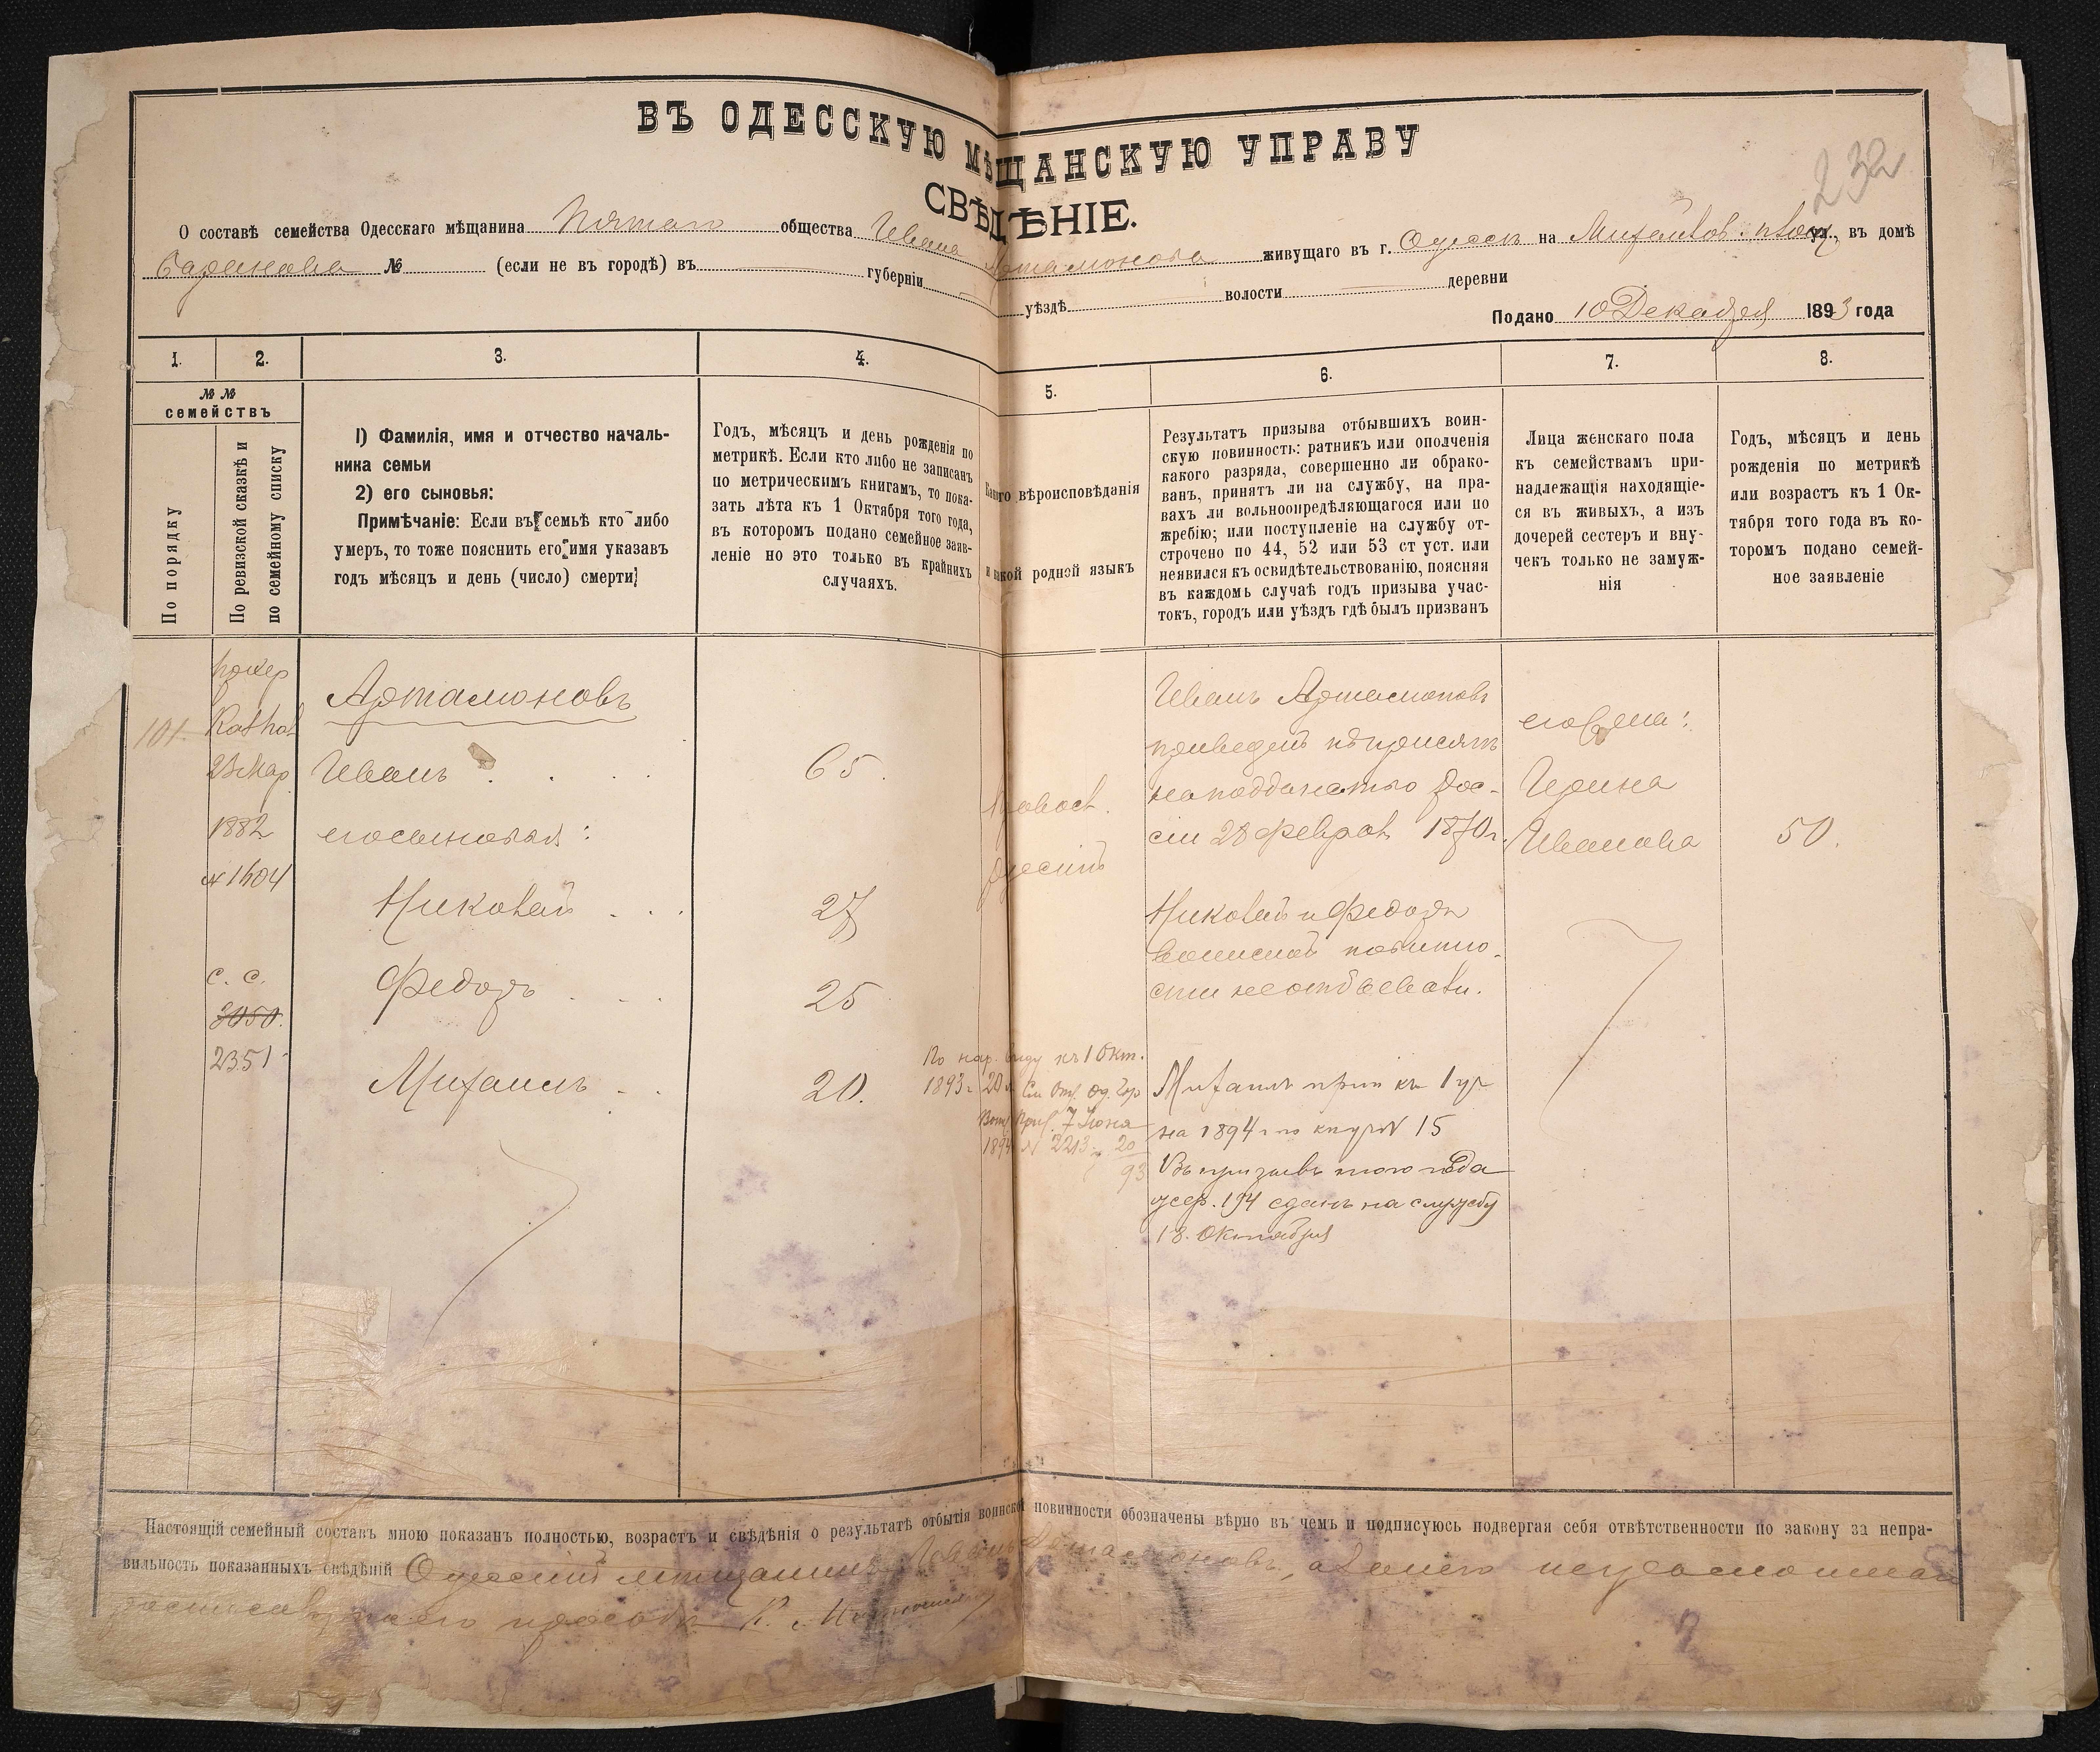 232
ВЪ ОДЕССКУЮ МѢЩАНСКУЮ УПРАВУ
СВѢДѢНІЕ.
О составѣ семейства Одесскаго мѣщанина Пятаго общества Ивана Артамонова живущаго въ г. Одессѣ на ул., въ домѣ
№ (если не въ городѣ) въ губерніи уѣздѣ волости деревни
Подано 10 Декабря 1893 года
1.
2.
3.
4.
5.
6.
7.
8.
№ №
семействъ
По порядку
По ревизской сказкѣ и
по семейному списку
1) Фамилія, имя и отчество началь-
ника семьи
2) его сыновья:
Примѣчаніе: Если въ семьѣ кто либо
умеръ, то тоже пояснить его имя указавъ
годъ мѣсяцъ и день (число) смерти;
Годъ, мѣсяцъ и день рожденія по
метрикѣ. Если кто либо не записанъ
по метрическимъ книгамъ, то пока-
зать лѣта къ 1 Октября того года,
въ которомъ подано семейное заяв-
леніе но это только въ крайнихъ
случаяхъ.
Какого вѣроисповѣданія
и какой родной языкъ
Результатъ призыва отбывшихъ воин-
скую повинность: ратникъ или ополченія
какого разряда, совершенно ли обрако-
ванъ, принятъ ли на службу, на пра-
вахъ ли вольноопредѣляющагося или по
жребію; или поступленіе на службу от-
строчено по 44, 52 или 53 ст уст. или
неявился къ освидѣтельствованію, поясняя
въ каждомъ случаѣ годъ призыва учас-
токъ, городъ или уѣздъ гдѣ былъ призванъ
Лица женскаго пола
къ семействамъ при-
надлежащія находящіе-
ся въ живыхъ, а изъ
дочерей сестеръ и вну-
чекъ только не замуж-
нія
Годъ, мѣсяцъ и день
рожденія по метрикѣ
или возрастъ къ 1 Ок-
тября того года въ ко-
торомъ подано семей-
ное заявленіе
101.
23 Мар
1882
№ 1604
с. с.
3050.
2351
Артамоновъ
Иванъ
его сыновья:
Николай
Федоръ
Михаилъ
65.
27
25
20.
Правосл.
русскій
По нар. виду къ 1 Окт.
1893 г. 20 л. См. Отн. Од. Гор
Воин. Прис. 7 Іюня
1894 № 2213
20
93
Иванъ Артамоновъ
приведенъ къ присягѣ
на подданство Рос-
сіи 28 Феврал 1870 г.
Николай и Федоръ
воинской повинно-
сти не отбывали.
Михаилъ прип къ 1 уч
на 1894 г. по № 15
Въ призывъ того года
жер. 194 сданъ на службу
18. Октября
его жена:
Ирина
Иванова
50.
Настоящій семейный составъ мною показанъ полностью, возрастъ и свѣдѣнія о результатѣ отбытія воинской повинности обозначены вѣрно въ чемъ и подписуюсь подвергая себя отвѣтственности по закону за непра-
вильность показанныхъ свѣдѣній Одесскій мѣщанинъ Иванъ Артамоновъ, а за него неграмотнаго
росписался по его просьбѣ К.